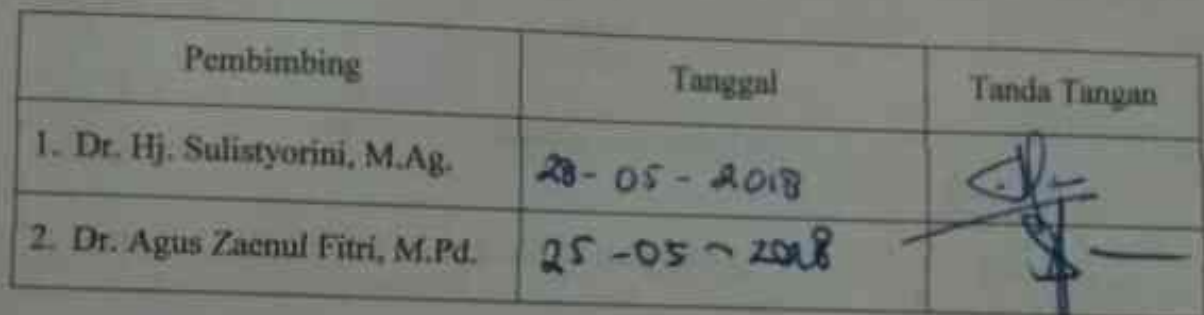 Pembimbing Tanggal Tanda Tangan
1. Dr. Hj. Sulistyorini, M.Ag. 28-05-2018
2. Dr. Agus Zaenul Fitri, M.Pd. 25-05-2018